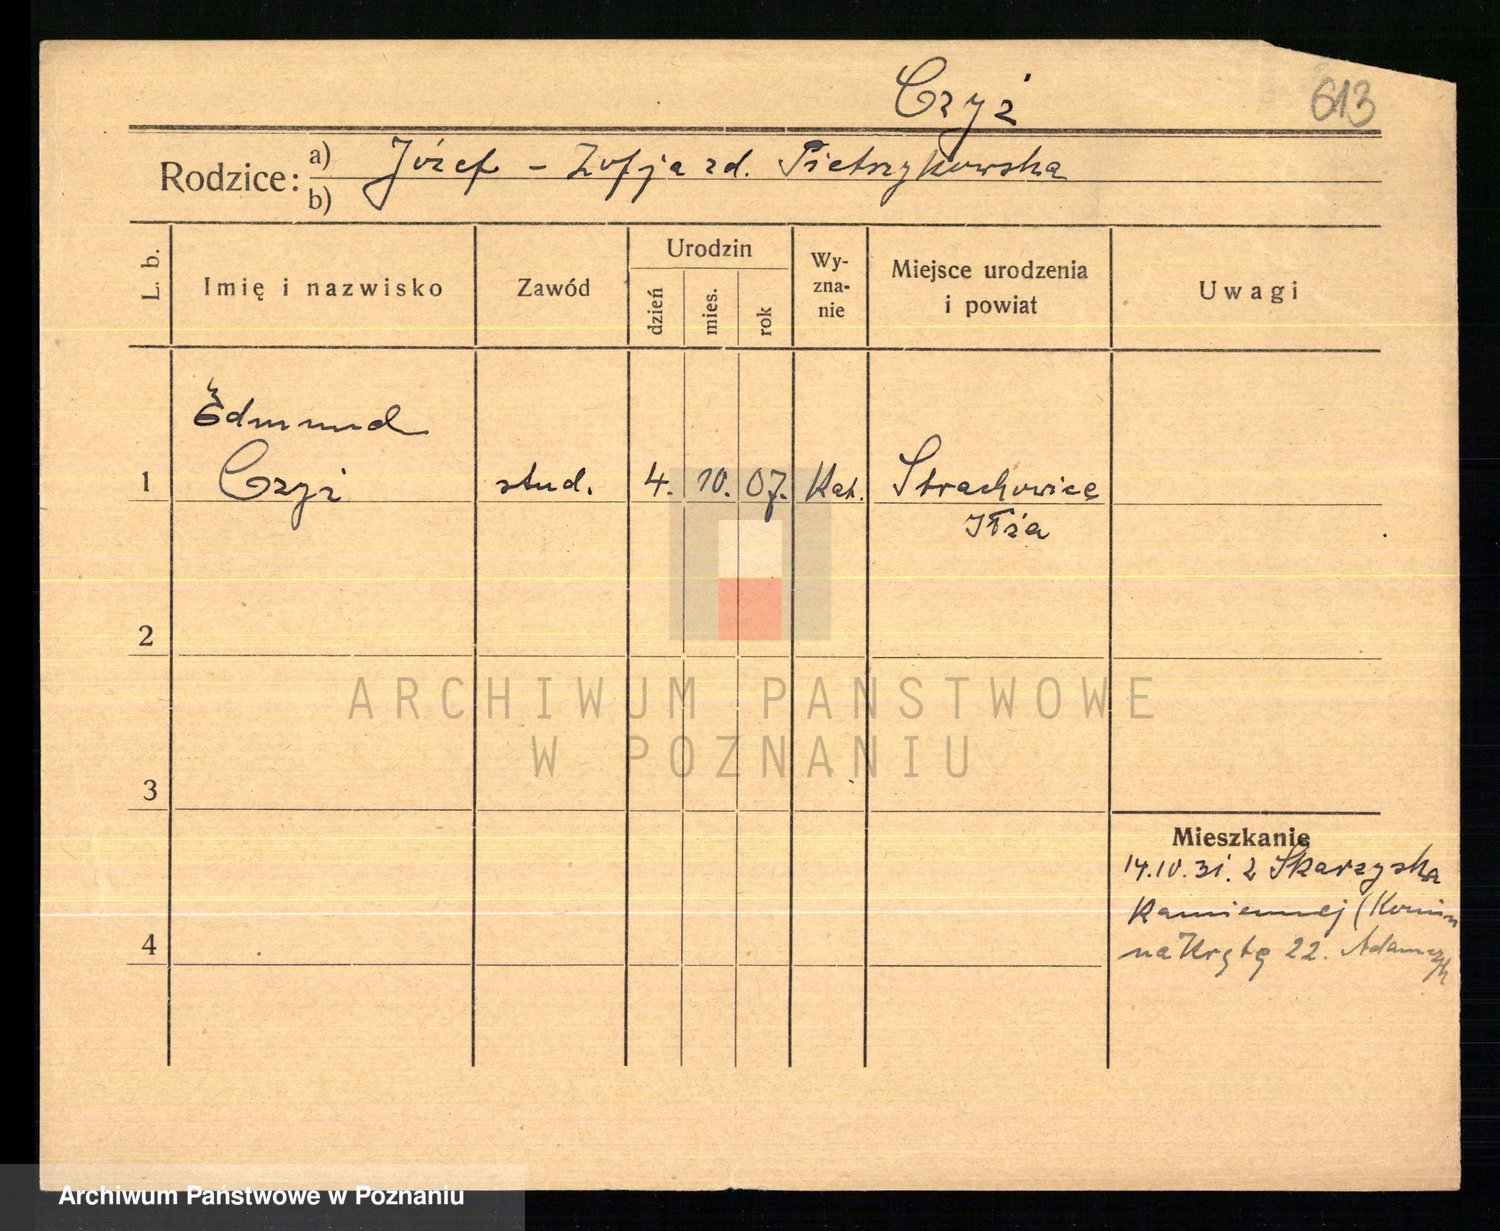 Czyż
613
Rodzice: a) Józef - Zofja zd. Pietrzykowska
b)
L. b.
Imię i nazwisko
Zawód
Urodzin
dzień
mies.
rok
Wy-
zna-
nie
Miejsce urodzenia
i powiat
Uwagi
Edmund
1 Czyż stud. 4. 10. 07. Kat. Strachowice
Iłża
2
ARCHIWUM PAŃSTWOWE
W POZNANIU
3
Mieszkanie
14.10.31. z Skarżyska
Kamiennej
4
na Krętę 22. Adamczyk
Archiwum Państwowe w Poznaniu